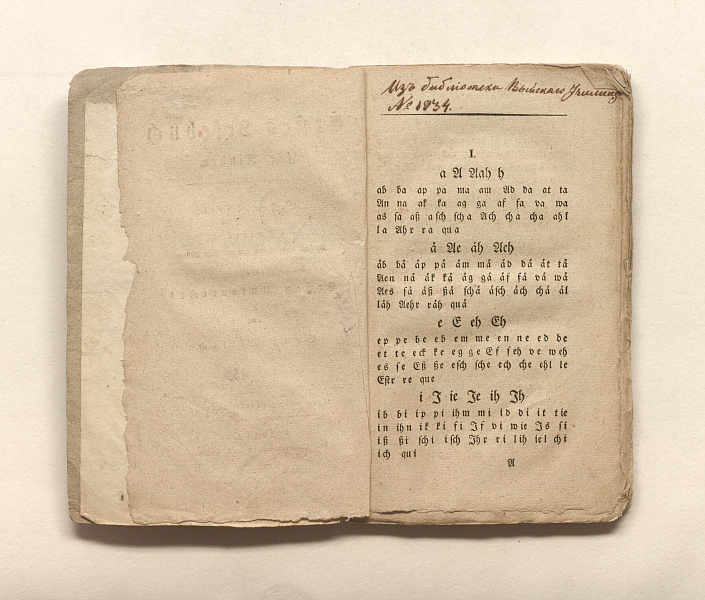 Изъ библіотеки Выйскаго Училища
№ 1834.
I.
a A Aah h
ab ba ap pa ma am Ad da at ta
An na ak ka ag ga af fa va wa
as sa aß asch scha Ach cha cha ahl
la Ahr ra qua
ä Ae äh Aeh
äb bä äp pä äm mä äd dä ät tä
Aen nä äk kä äg gä äf fä vä wä
Aes sä äß ßä schä äsch äch chä äl
läh Aehr räh quä
e E eh Eh
ep pe be eb em me en ne ed de
et te eck ke eg ge Ef feh ve weh
es se Eß ße esch sche ech che ehl le
Ehr re que
i J ie Je ih Jh
ib bi ip pi ihm mi id di it tie
in ihn ik ki fi If vi wie Is si
iß ßi schi isch Ihr ri lih iel chi
ich qui
A